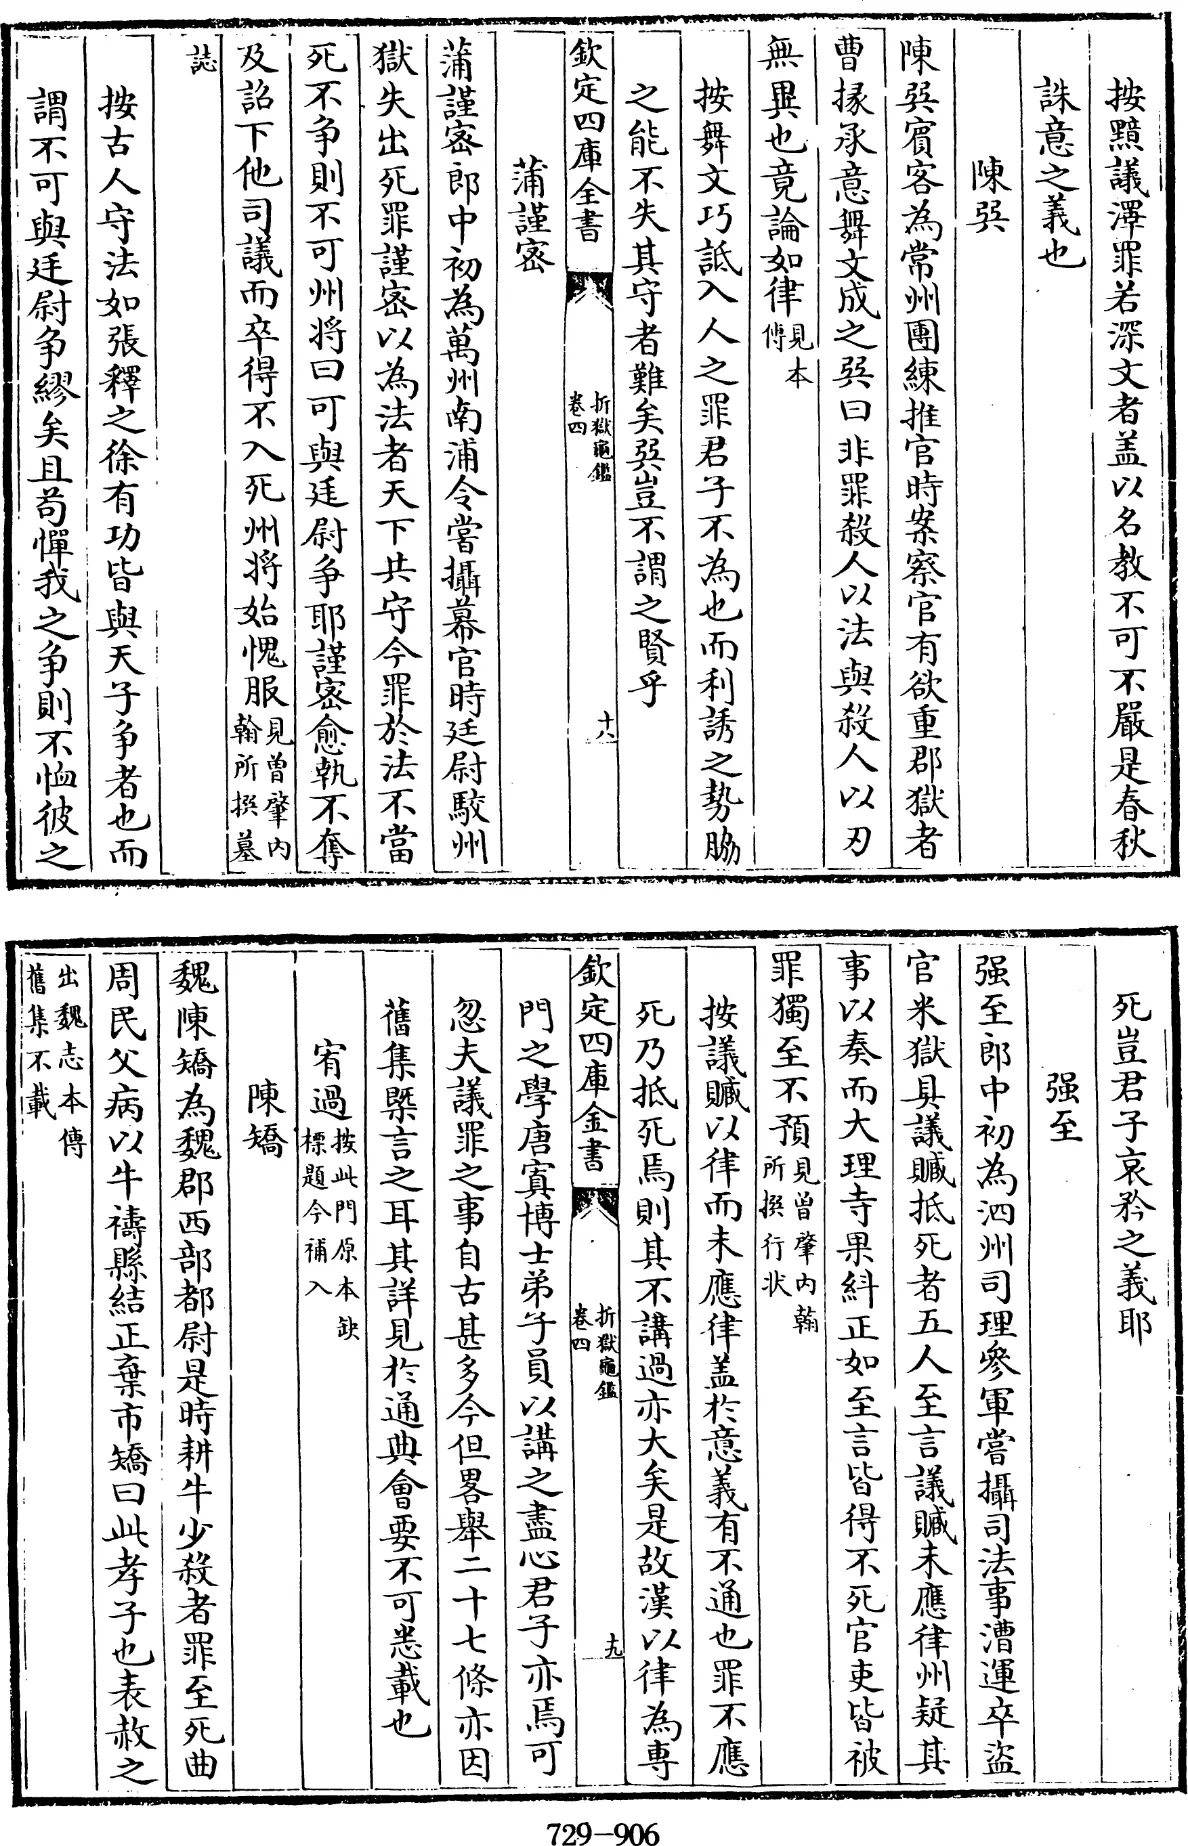 按黯議澤罪若深文者蓋以名教不可不嚴是春秋
誅意之義也
陳巽
陳巽賓客為常州團練推官時案察官有欲重郡獄者
曹掾承意舞文成之巽曰非罪殺人以法與殺人以刃
無異也竟論如律見本傳
按舞文巧詆入人之罪君子不為也而利誘之勢脇
之能不失其守者難矣巽豈不謂之賢乎
欽定四庫全書
折獄龜鑑
卷四
十八
蒲謹密
蒲謹密郎中初為萬州南浦令嘗攝幕官時廷尉駮州
獄失出死罪謹密以為法者天下共守今罪於法不當
死不争則不可州将曰可與廷尉争耶謹密愈執不奪
及詔下他司議而卒得不入死州将始愧服見曾肇内翰所撰墓
誌
按古人守法如張釋之徐有功皆與天子争者也而
謂不可與廷尉争繆矣且苟憚我之争則不恤彼之
死豈君子哀矜之義耶
强至
强至郎中初為泗州司理參軍嘗攝司法事漕運卒盜
官米獄具議贓抵死者五人至言議贓未應律州疑其
事以奏而大理寺果糾正如至言皆得不死官吏皆被
罪獨至不預見曾肇内翰所撰行状
按議贓以律而未應律蓋於意義有不通也罪不應
死乃抵死焉則其不講過亦大矣是故漢以律為專
欽定四庫全書
折獄龜鑑
卷四
十九
門之學唐寘博士弟子員以講之盡心君子亦焉可
忽夫議罪之事自古甚多今但畧舉二十七條亦因
舊集槩言之耳其詳見於通典會要不可悉載也
宥過按此門原本缺標題今補入
陳矯
魏陳矯為魏郡西部都尉是時耕牛少殺者罪至死曲
周民父病以牛禱縣結正棄市矯曰此孝子也表赦之
出魏志本傳
舊集不載
729-906